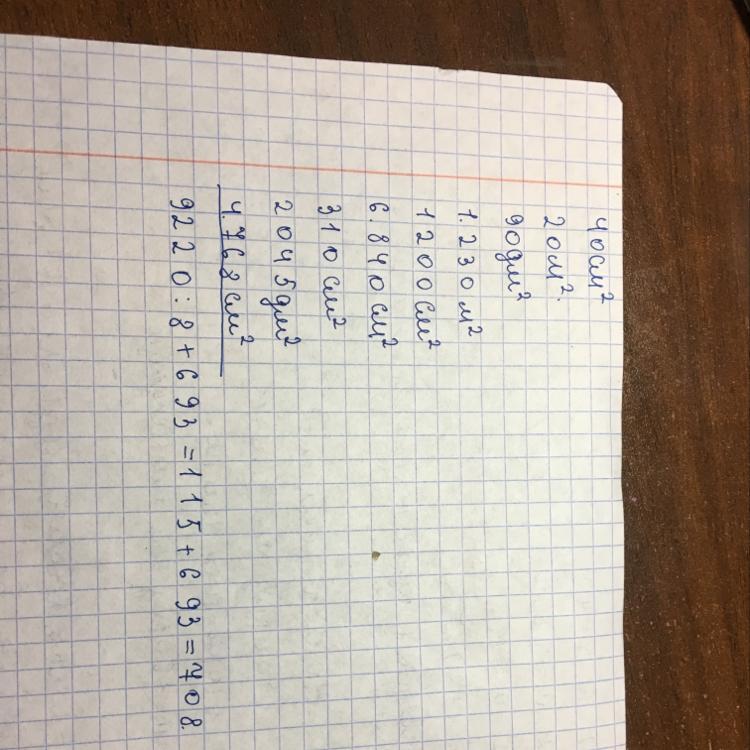 40см²
20м².
90дм²
1.230м²
1200см²
6.840см²
310см²
2045дм²
4.768см²
9220:8+693=115+693=708